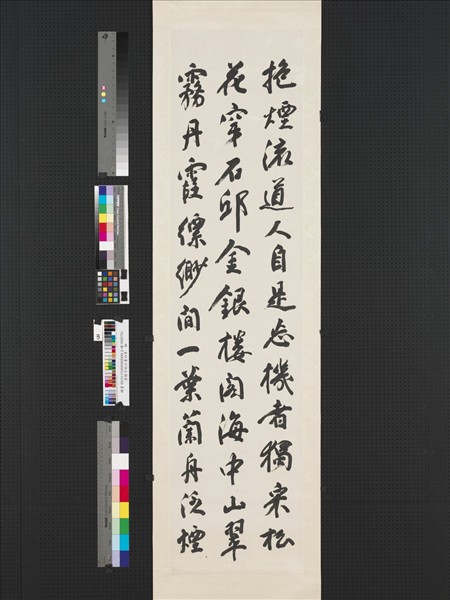 挹煙流道人自是忘機者獨采松
花穿石邱金銀樓閣海中山翠
霧丹霞縹緲間一葉蘭舟泛煙